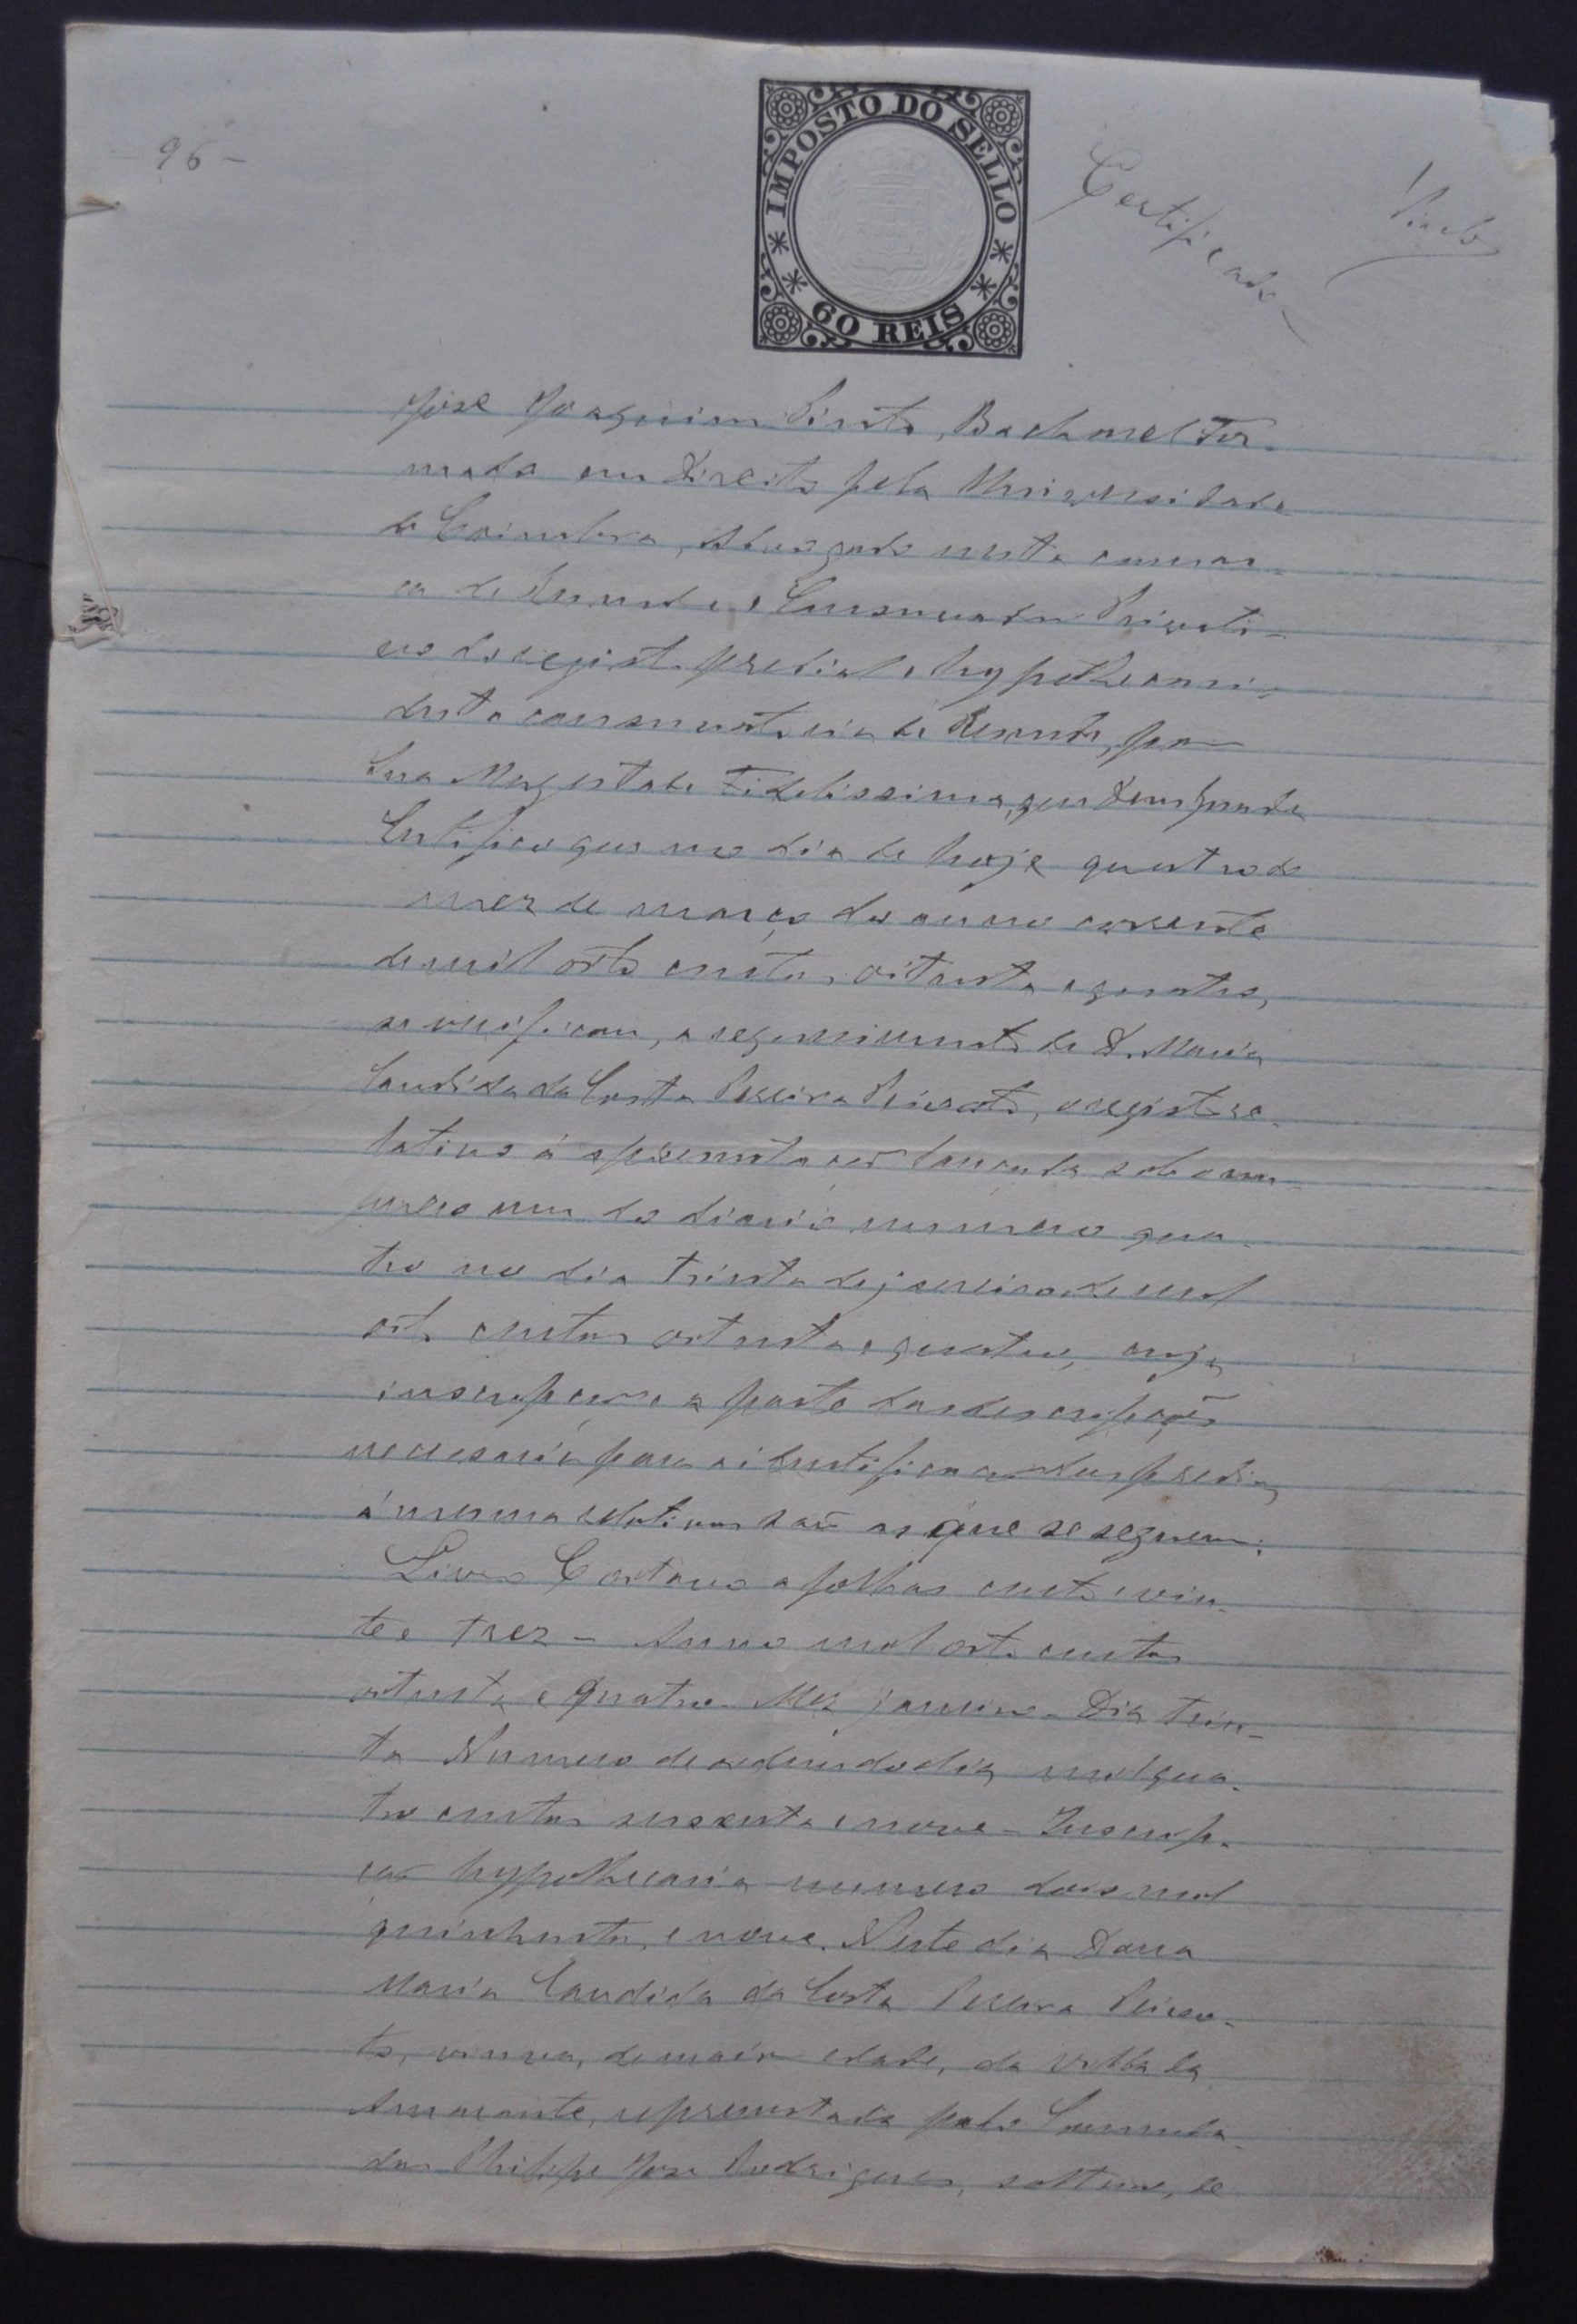 96-
IMPOSTO DO SELLO
60 REIS
Certificado
Pinto
José Joaquim Pinto, Bacharel For-
mado em Direito pela Universidade
de Coimbra, Advogado nesta comar-
ca de Resende e Conservador Privati-
vo do registo predial e hypothecario
desta conservatoria de Resende, por
Sua Magestade Fidelissima, que Deus Guarde
Certifico que no dia de hoje quatro do
mez de março do anno corrente
de mil oito centos oitenta e quatro,
se verificou, a requerimento de D. Maria
Candida da Costa Pereira Peixoto, o registo re-
lativo á apresentação lançada sob o nu-
mero um do diario numero qua-
tro no dia trinta de janeiro de mil
oito centos oitenta e quatro, cuja
inscripção e a parte das descripções
necessaria para a identificação dos predios
á mesma relativos são as que se seguem:
Livro C oitavo a folhas cento e vin-
te e trez - Anno mil oito centos
oitenta e quatro - Mez janeiro - Dia trin-
ta Numero de ordem do dia mil qua-
tro centos sessenta e nove - Inscrip-
ção hypothecaria numero dois mil
quinhentos e nove. Neste dia Dona
Maria Candida da Costa Pereira Peixo-
to, viuva, de maior edade, da villa de
Amarante, representada pelo
Philippe José Rodrigues, solteiro, de